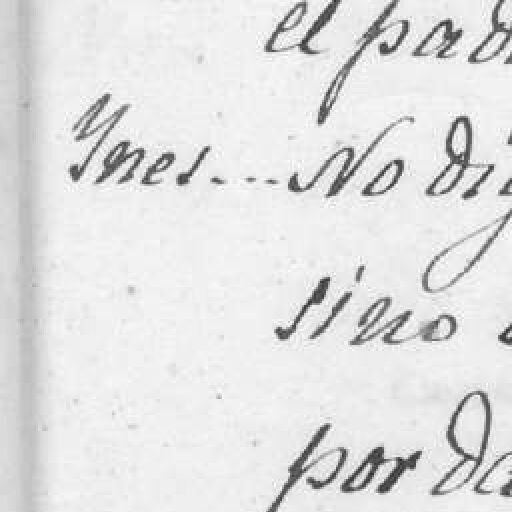 el pad
Ynes... No dig
sino
por da